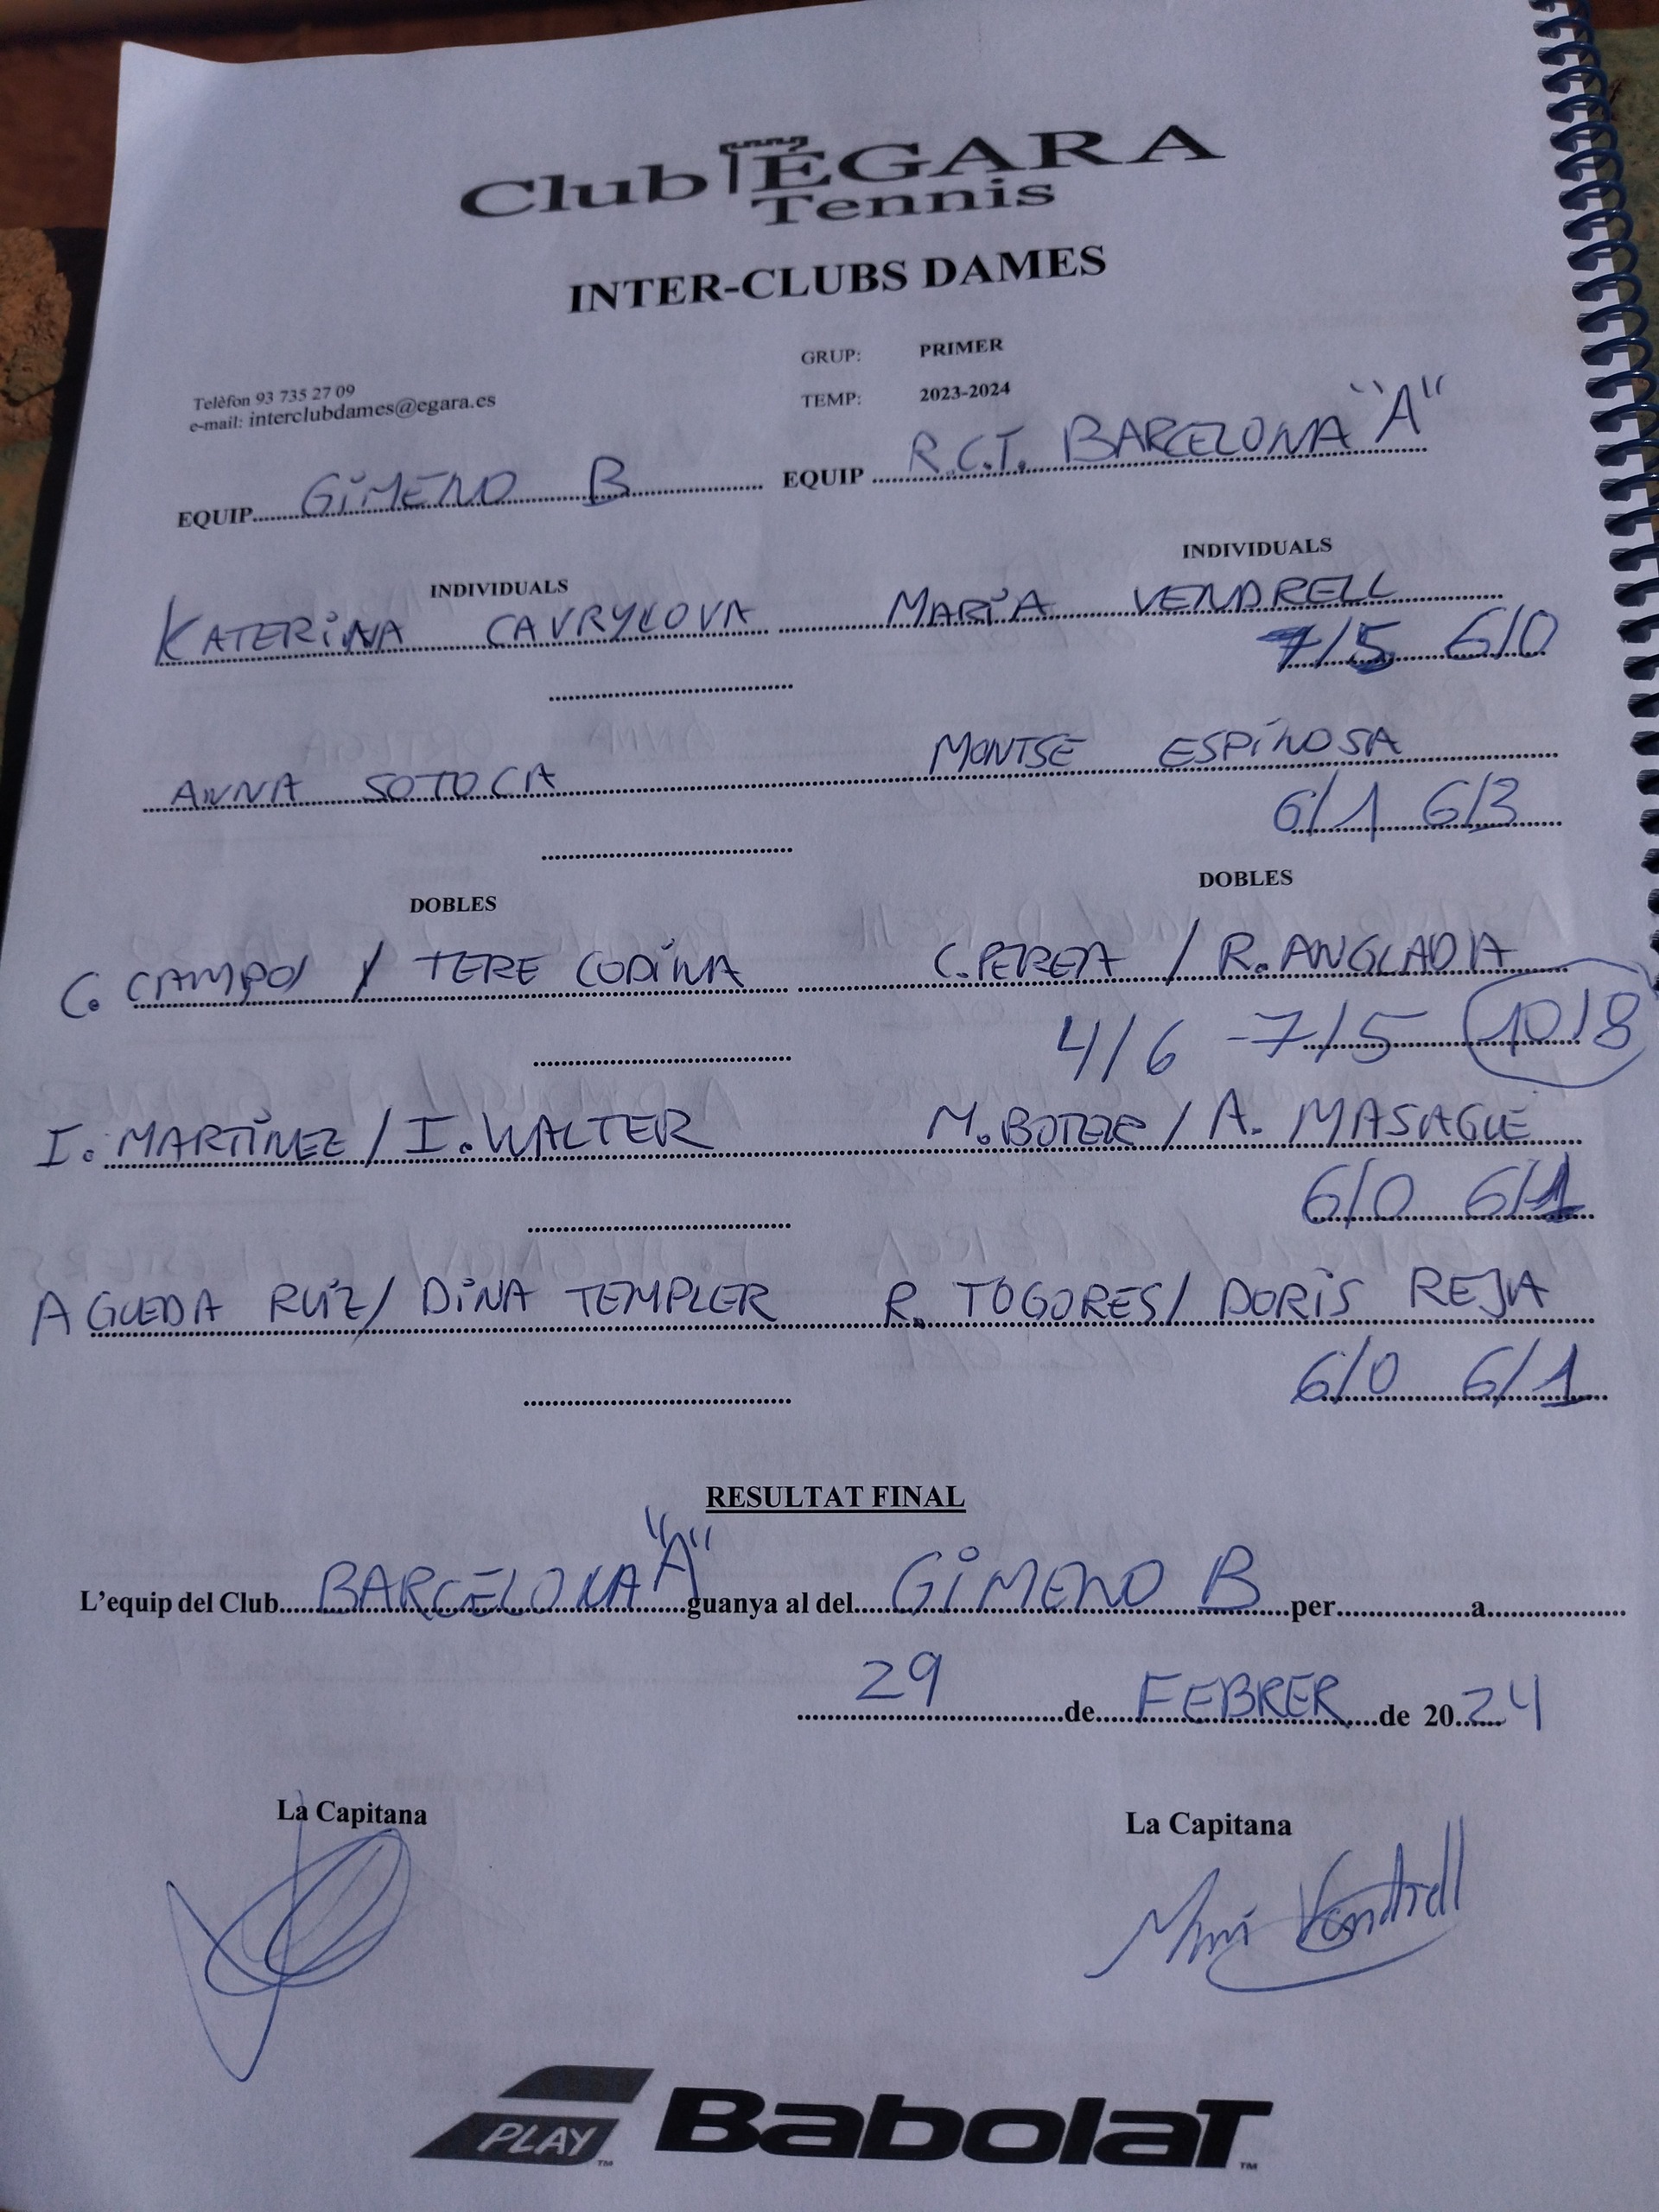 Club ÈGARA
Tennis
INTER-CLUBS DAMES
GRUP: PRIMER
Telèfon 93 735 27 09
TEMP: 2023-2024
e-mail: interclubdames@egara.es
EQUIP GIMENO B EQUIP R.C.T. BARCELONA "A"
INDIVIDUALS INDIVIDUALS
KATERINA CAVRYLOVA MARÍA VENDRELL
7/5 6/0
ANNA SOTOCA MONTSE ESPINOSA
6/1 6/3
DOBLES DOBLES
C. CAMPOS / TERE CODINA C. PEREA / R. ANGLADA
4/6 -7/5 10/8
I. MARTINEZ / I. WALTER M. BOTER / A. MASAGUE
6/0 6/1
AGUEDA RUIZ / DINA TEMPLER R. TOGORES / DORIS REJA
6/0 6/1
RESULTAT FINAL
L'equip del Club BARCELONA "A" guanya al del GIMENO B per a
29 de FEBRER de 2024
La Capitana La Capitana
Vendrell
PLAY™ BabolaT™